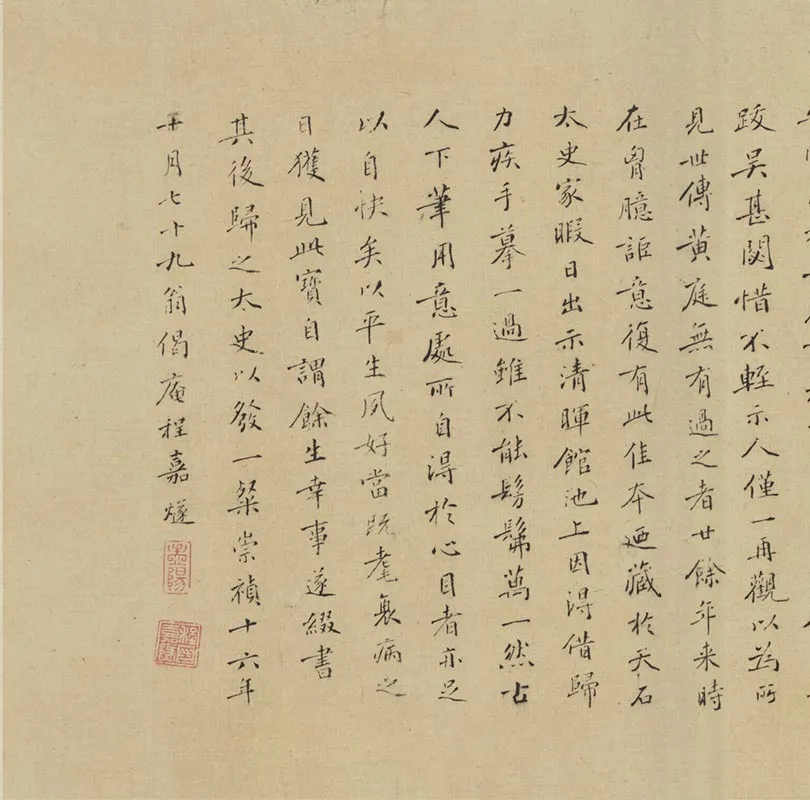 跋吳甚閟惜不輕示人僅一再觀以為所
見世傳黃庭無有過之者廿餘年来時
在胷臆詎意復有此佳本迺藏於天石
太史家暇日出示清暉館池上因淂借歸
力疾手摹一過雖不能髣髴萬一然古
人下筆用意處所自淂於心目者亦足
以自快矣以平生夙好當既耄衰病之
日獲見此寶自謂餘生幸事遂綴書
其後歸之太史以發一粲崇禎十六年
十月七十九翁偈庵程嘉燧
孟陽